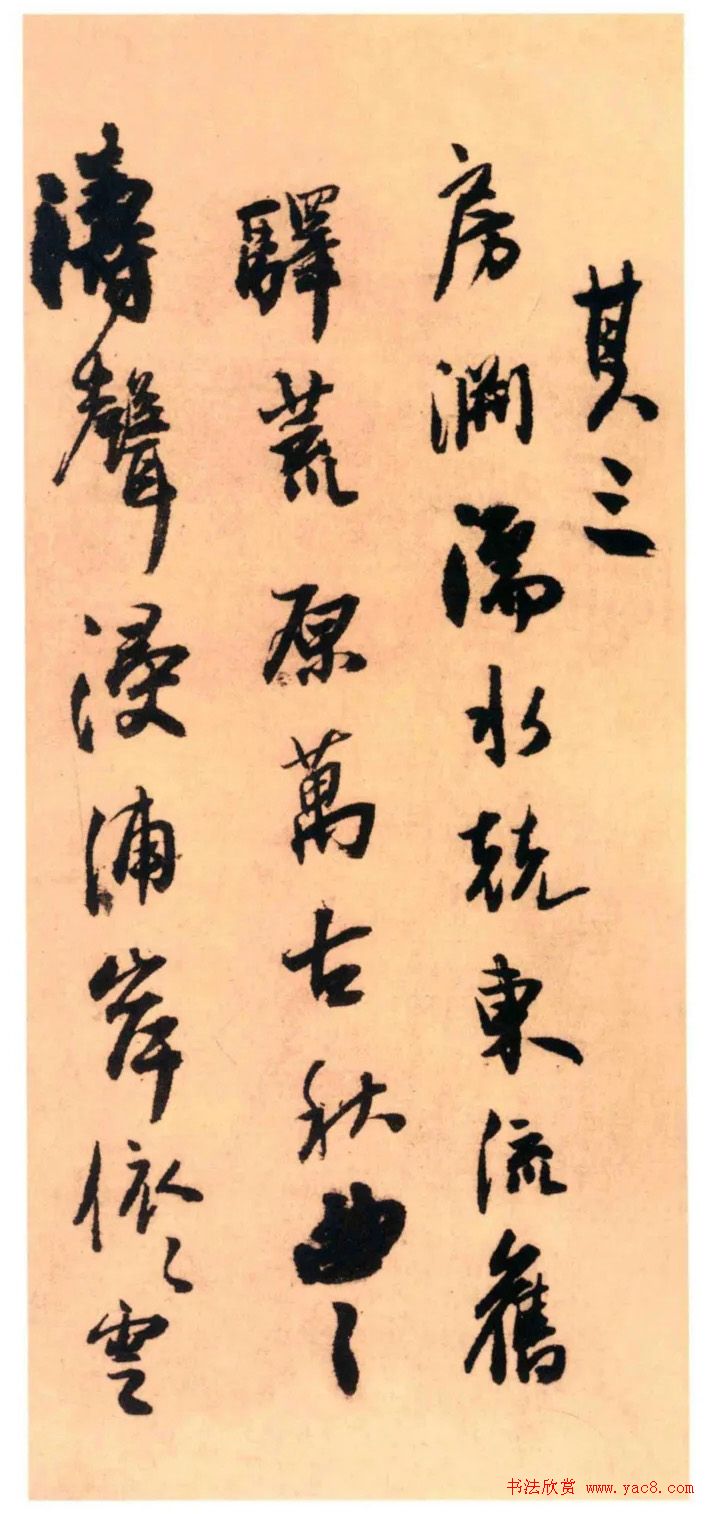 其三
房淵濡水競東流舊
驛荒原萬古秋曲〻
濤聲浸浦岸依〻雲
书法欣赏 www.yac8.com